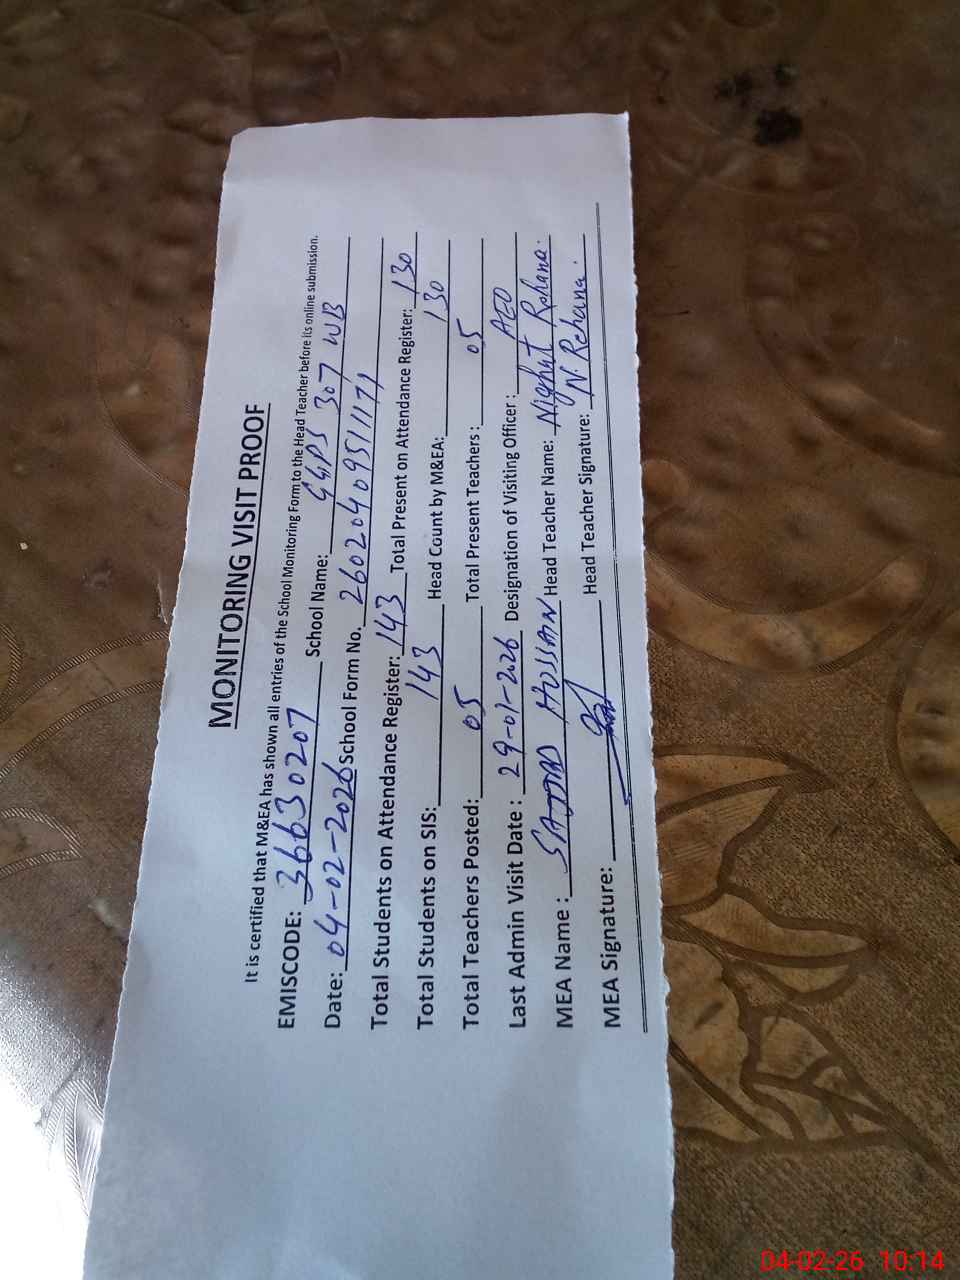 MONITORING VISIT PROOF
It is certified that M&EA has shown all entries of the School Monitoring Form to the Head Teacher before its online submission.
EMISCODE: 36630207 School Name: GGPS 307 WB
Date: 04-02-2026 School Form No. 26020409511171
Total Students on Attendance Register: 143 Total Present on Attendance Register: 130
Total Students on SIS: 143 Head Count by M&EA: 130
Total Teachers Posted: 05 Total Present Teachers: 05
Last Admin Visit Date: 29-01-2026 Designation of Visiting Officer: AEO
MEA Name: SAJJAD HUSSAIN Head Teacher Name: Nighat Rehana.
MEA Signature: Head Teacher Signature: N. Rehana.
04-02-26 10:14